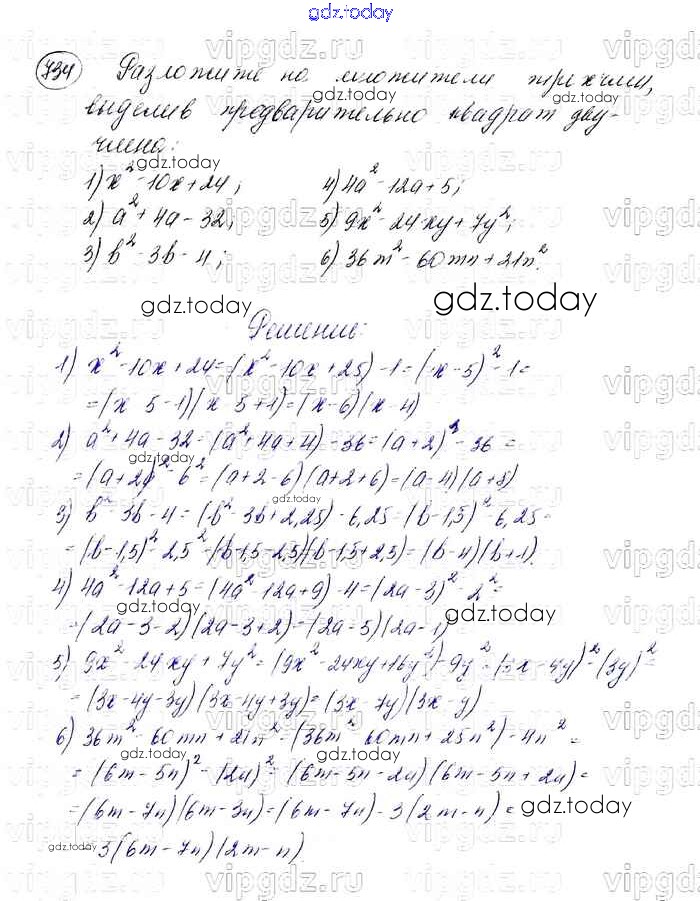 gdz.today
734 Разложите на множители трехчлен,
выделив предварительно квадрат дву-
члена:
1) x² - 10x + 24; 4) 4a² - 12a + 5;
2) a² + 4a - 32; 5) 9x² - 24xy + 7y²;
3) b² - 3b - 4; 6) 36m² - 60mn + 21n².
gdz.today gdz.today
Решение:
1) x² - 10x + 24 = (x² - 10x + 25) - 1 = (x - 5)² - 1 =
= (x - 5 - 1)(x - 5 + 1) = (x - 6)(x - 4)
2) a² + 4a - 32 = (a² + 4a + 4) - 36 = (a + 2)² - 36 =
= (a + 2)² - 6² = (a + 2 - 6)(a + 2 + 6) = (a - 4)(a + 8)
3) b² - 3b - 4 = (b² - 3b + 2,25) - 6,25 = (b - 1,5)² - 6,25 =
= (b - 1,5)² - 2,5² = (b - 1,5 - 2,5)(b - 1,5 + 2,5) = (b - 4)(b + 1).
4) 4a² - 12a + 5 = (4a² - 12a + 9) - 4 = (2a - 3)² - 2² =
= (2a - 3 - 2)(2a - 3 + 2) = (2a - 5)(2a - 1)
5) 9x² - 24xy + 7y² = (9x² - 24xy + 16y²) - 9y² = (3x - 4y)² - (3y)² =
= (3x - 4y - 3y)(3x - 4y + 3y) = (3x - 7y)(3x - y)
6) 36m² - 60mn + 21n² = (36m² - 60mn + 25n²) - 4n² =
= (6m - 5n)² - (2n)² = (6m - 5n - 2n)(6m - 5n + 2n) =
= (6m - 7n)(6m - 3n) = (6m - 7n) · 3(2m - n) =
= 3(6m - 7n)(2m - n)
gdz.today
vipgdz.ru